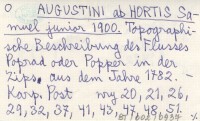 O. AUGUSTINI ab HORTIS Sa-
muel junior 1900. Topographi-
sche Beschreibung des Flusses
Poprad oder Popper in der
Zips, aus dem Jahre 1782. -
Karp. Post nry 20, 21, 26,
29, 32, 37, 41, 43, 47, 48, 51.